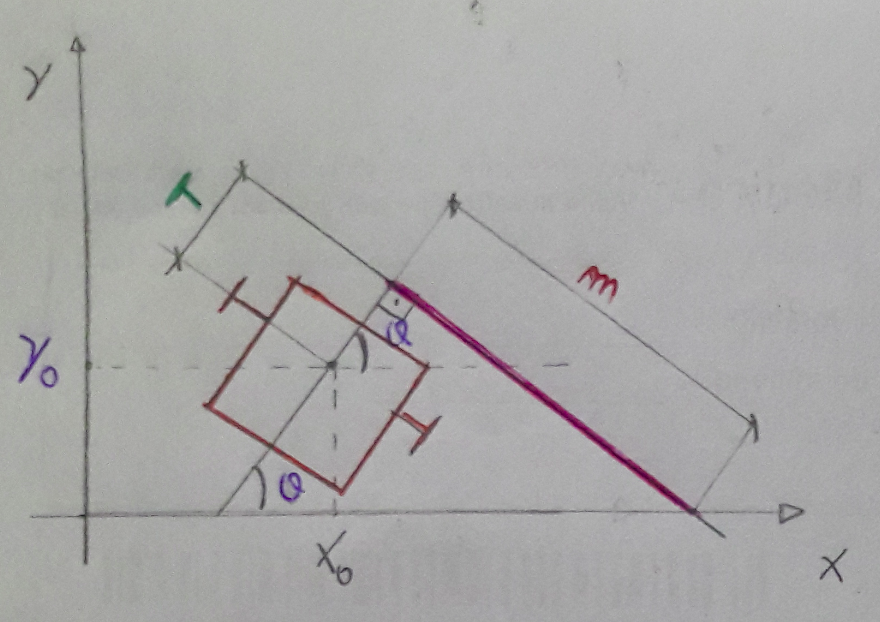 Y
T
m
θ
Y₀
θ
X₀
X